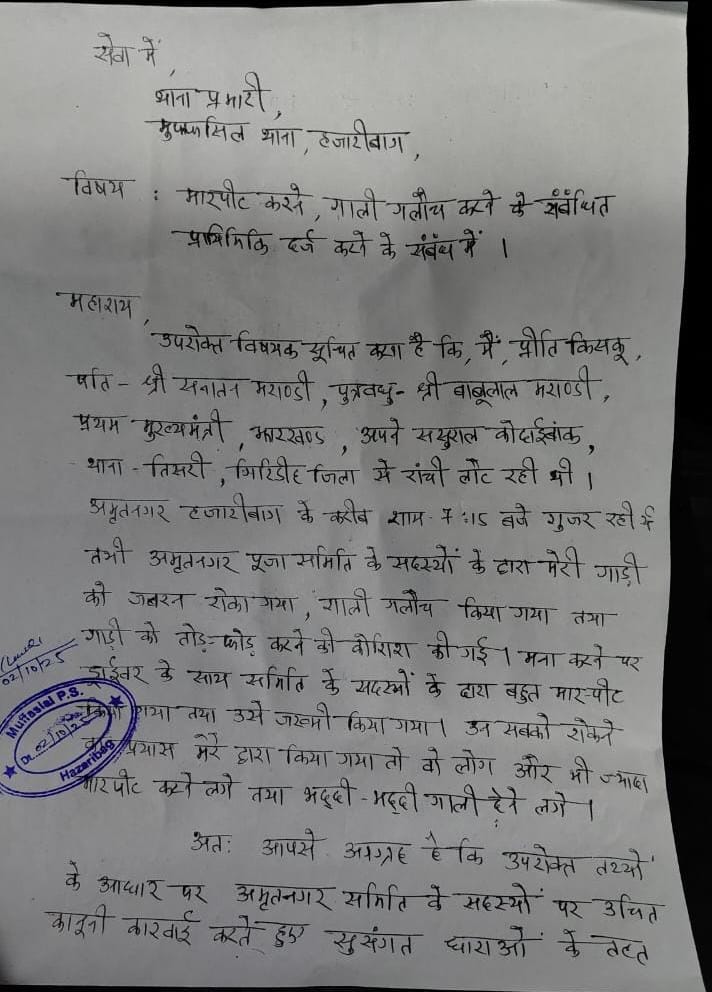 सेवा में,
थाना प्रभारी,
मुफ्फसिल थाना, हजारीबाग,
विषय : मारपीट करने, गाली गलौच करने के संबंधित
प्राथमिकि दर्ज करने के संबंध में ।
महाशय,
उपरोक्त विषयक सूचित करना है कि, मैं, प्रीति किसकू,
पति - श्री सनातन मराण्डी, पुत्रवधु - श्री बाबूलाल मराण्डी,
प्रथम मुख्यमंत्री, झारखण्ड, अपने ससुराल कोदाईबांक,
थाना - तिसरी, गिरिडीह जिला से रांची लौट रही थी ।
अमृतनगर हजारीबाग के करीब शाम 7:15 बजे गुजर रही थी
तभी अमृतनगर पूजा समिति के सदस्यों के द्वारा मेरी गाड़ी
को जबरन रोका गया, गाली गलौच किया गया तथा
गाड़ी को तोड़-फोड़ करने की कोशिश की गई । मना करने पर
02/10/25
ड्राईवर के साथ समिति के सदस्यों के द्वारा बहुत मार-पीट
किया गया तथा उसे जख्मी किया गया । उन सबको रोकने
का प्रयास मेरे द्वारा किया गया तो वो लोग और भी ज्यादा
मारपीट करने लगे तथा भद्दी-भद्दी गाली देने लगे ।
Muffasial P.S.
Dt. 02/10/25
Hazaribag
अतः आपसे आग्रह है कि उपरोक्त तथ्यों
के आधार पर अमृतनगर समिति के सदस्यों पर उचित
कानूनी कारवाई करते हुए सुसंगत धाराओं के तहत